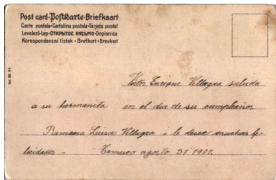 Post card-Postkarte-Briefkaart
Carte postale-Cartolina postale-Tarjeta postal
Levelező-Lap-ОТКРЫТОЕ ПИСЬМО-Dopisnice
Korespondenční lístek - Brefkort-Brevkort
Victor Enrique Villagra saluda
a su hermanita en el dia de su cumpleaños
Ramona Luisa Villagra i le desea muchas fe-
licidades - Temuco agosto 31 1911.